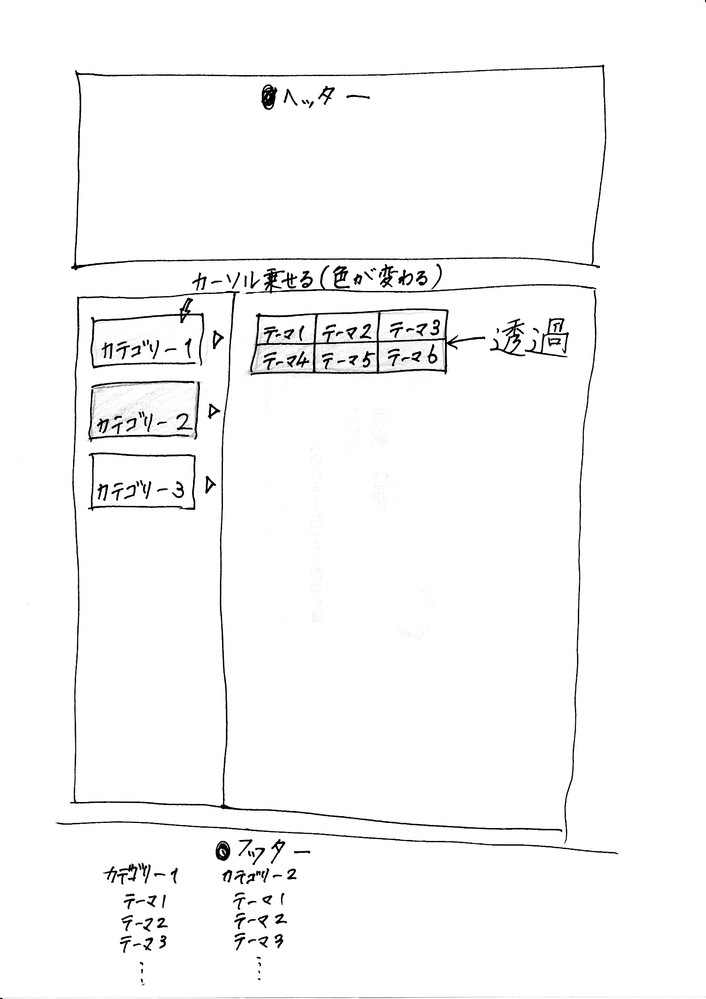 ●ヘッター
カーソル乗せる(色が変わる)
カテゴリー1 ▷
テーマ1 テーマ2 テーマ3
テーマ4 テーマ5 テーマ6
←透過
カテゴリー2 ▷
カテゴリー3 ▷
●フッター
カテゴリー1
テーマ1
テーマ2
テーマ3
⋮
カテゴリー2
テーマ1
テーマ2
テーマ3
⋮